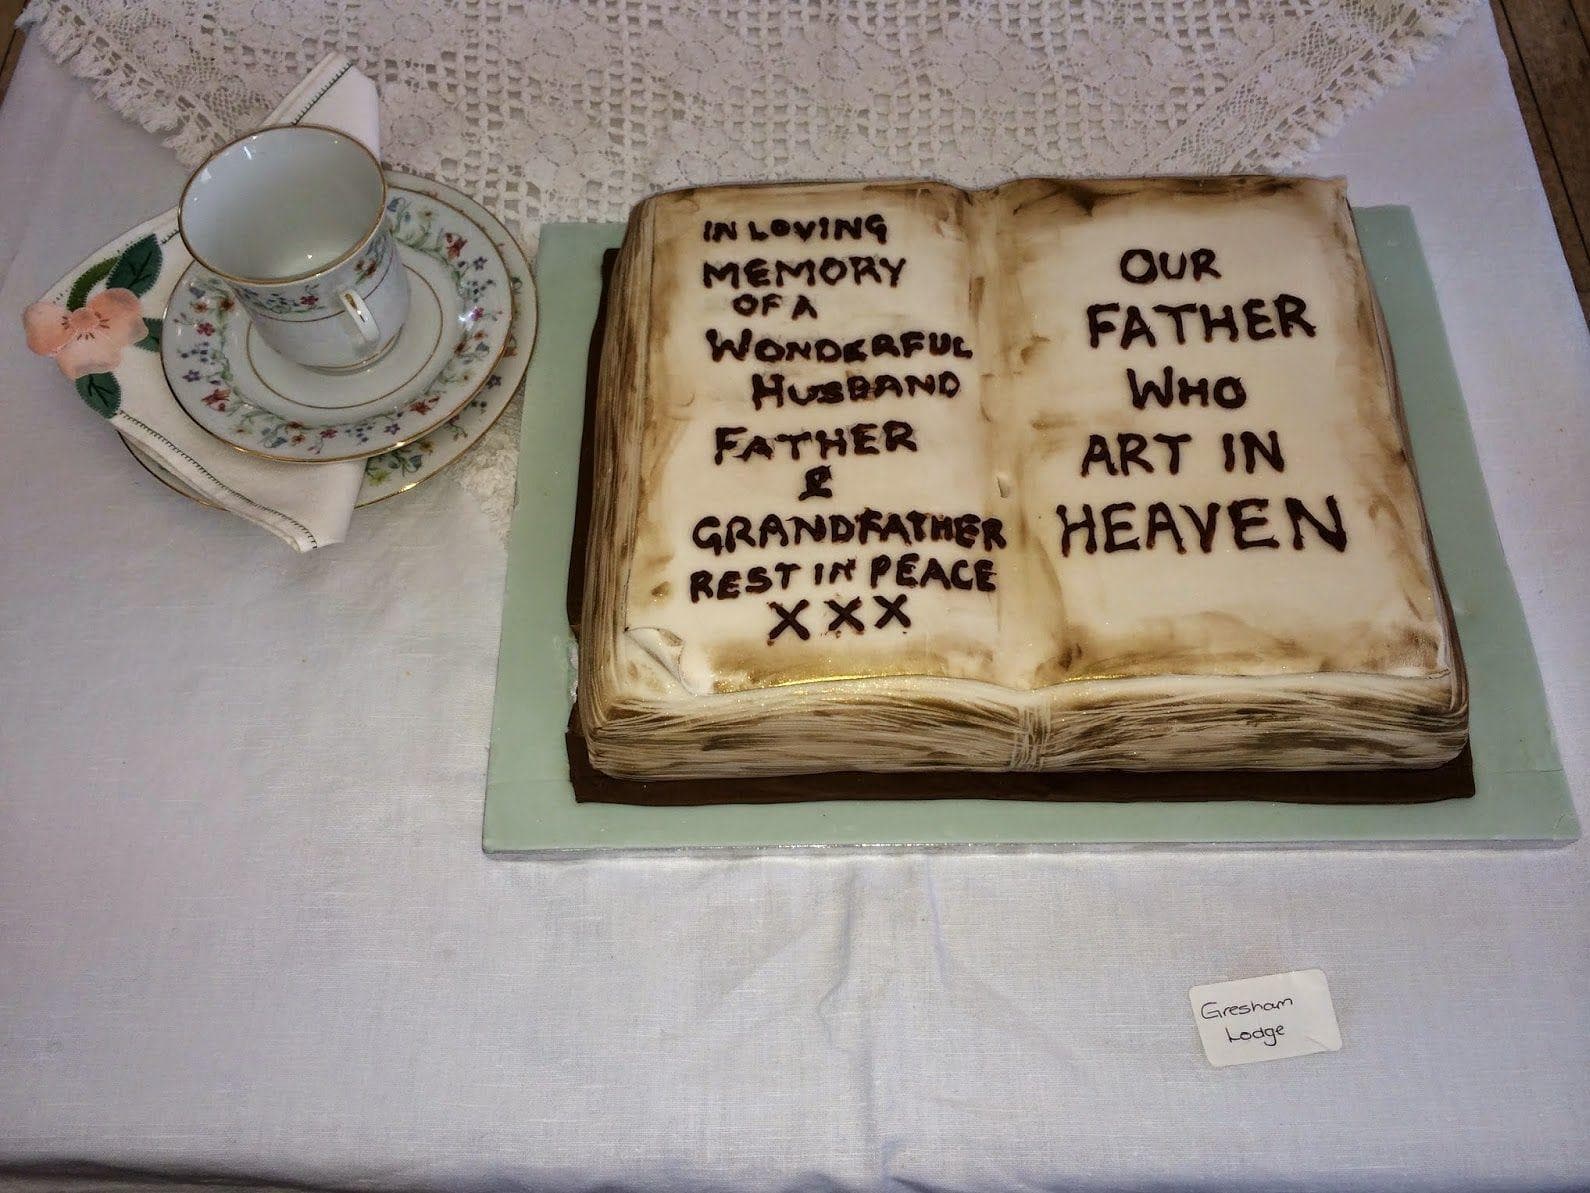 IN LOVING
MEMORY
OF A
WONDERFUL
HUSBAND
FATHER
&
GRANDFATHER
REST IN PEACE
XXX
OUR
FATHER
WHO
ART IN
HEAVEN
Gresham
Lodge